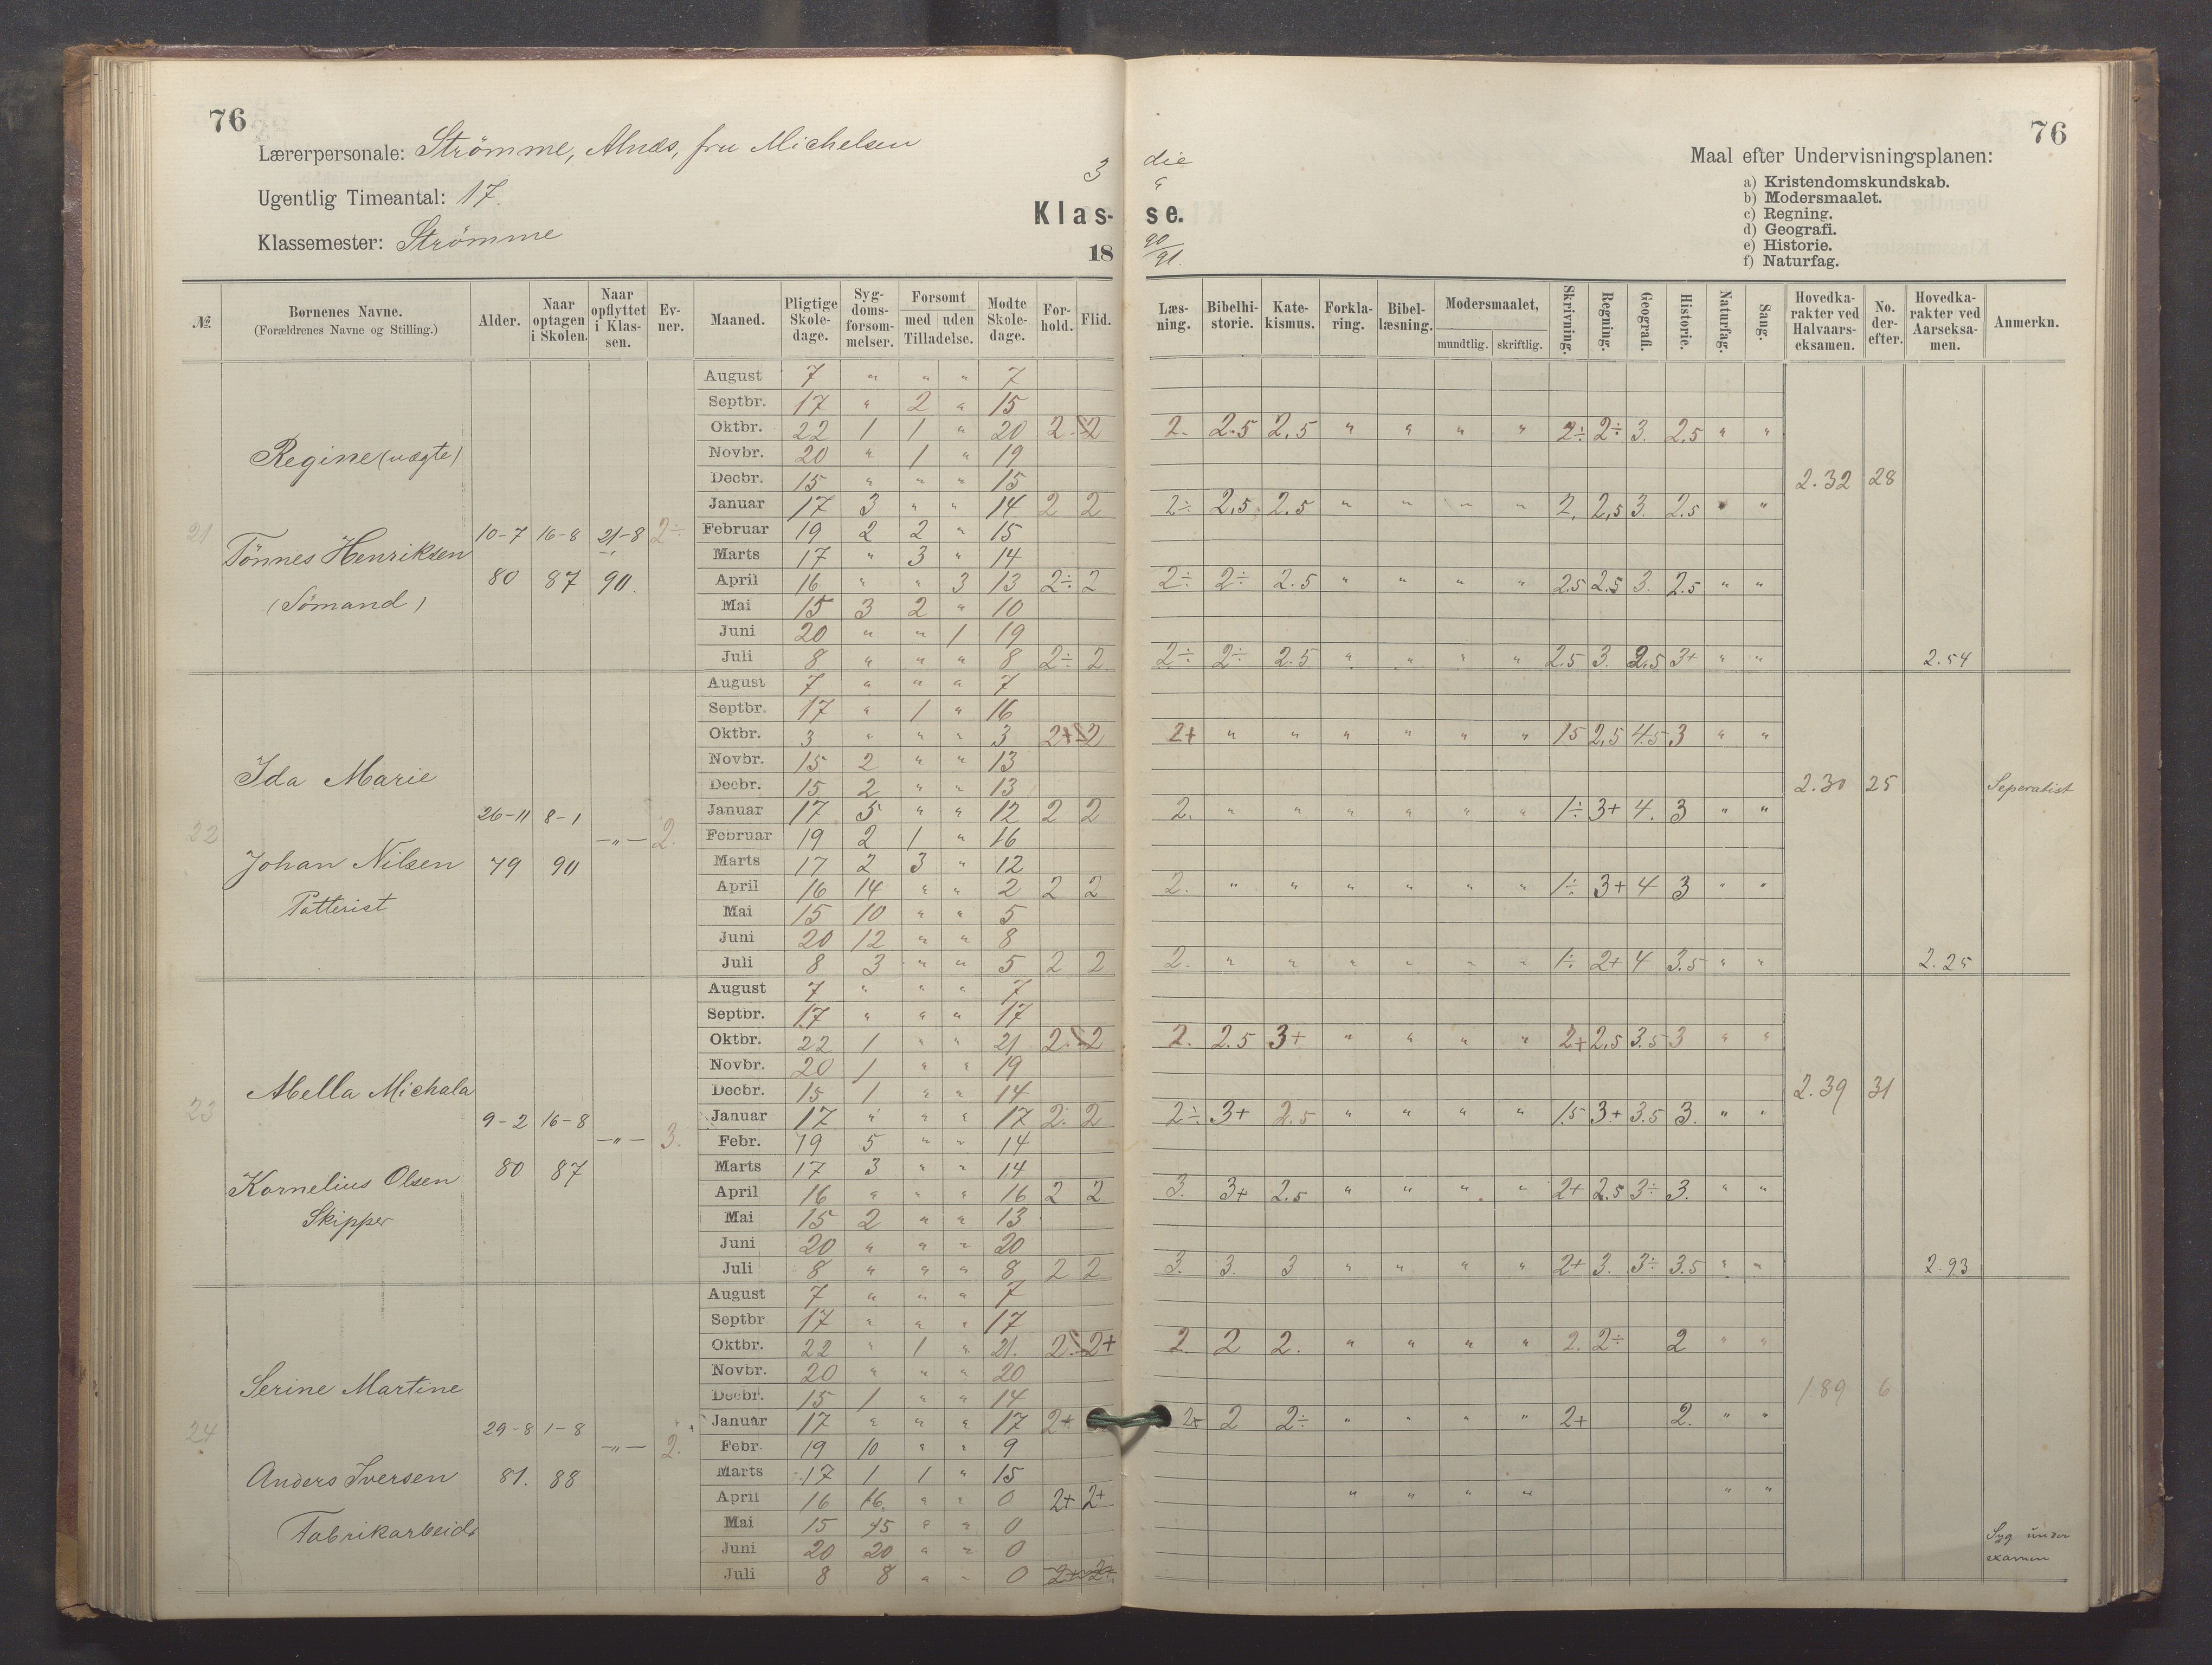 76
Lærerpersonale: Strömme, Alnæs, fru Michelsen
Ugentlig Timeantal: 17.
Klassemester: Strömme
3 die
Klas- se.
18 90/91.
76
Maal efter Undervisningsplanen:
a) Kristendomskundskab.
b) Modersmaalet.
c) Regning.
d) Geografi.
e) Historie.
f) Naturfag.
№. Børnenes Navne. (Forældrenes Navne og Stilling.) Alder. Naar optagen i Skolen. Naar opflyttet i Klas- sen. Ev- ner. Maaned. Pligtige Skole- dage. Syg- doms- forsøm- melser. Forsømt med uden Tilladelse. Mødte Skole- dage. For- hold. Flid. Læs- ning. Bibelhi- storie. Kate- kismus. Forkla- ring. Bibel- læsning. Modersmaalet, mundtlig. skriftlig. Skrivning. Regning. Geografi. Historie. Naturfag. Sang. Hovedka- rakter ved Halvaars- eksamen. No. der- efter. Hovedka- rakter ved Aarseksa- men. Anmerkn.
21 Regine (uægte)
Tönnes Henriksen
(Sömand)
10-7 80 16-8 87 21-8 90. 2÷
August 7 " " " 7
Septbr. 17 " 2 " 15
Oktbr. 22 1 1 " 20 2. 2 2. 2.5 2.5 " " " " 2÷ 2÷ 3. 2.5 " "
Novbr. 20 " 1 " 19
Decbr. 15 " " " 15 2.32 28
Januar 17 3 " " 14 2 2 2÷ 2.5 2.5 " " " " 2. 2.5 3. 2.5 " "
Februar 19 2 2 " 15
Marts 17 " 3 " 14
April 16 " " 3 13 2÷ 2 2÷ 2÷ 2.5 " " " " 2.5 2.5 3. 2.5 " "
Mai 15 3 2 " 10
Juni 20 " " 1 19
Juli 8 " " " 8 2÷ 2 2÷ 2÷ 2.5 " " " " 2.5 3. 2.5 3+ " " 2.54
22 Ida Marie
Johan Nilsen
Potterist
26-11 79 8-1 90 —"— 2.
August 7 " " " 7
Septbr. 17 " 1 " 16
Oktbr. 3 " " " 3 2+ 2 2+ " " " " " " 1.5 2.5 4.5 3 " "
Novbr. 15 2 " " 13
Decbr. 15 2 " " 13 2.30 25 Seperatist
Januar 17 5 " " 12 2 2 2. " " " " " " 1÷ 3+ 4. 3 " "
Februar 19 2 1 " 16
Marts 17 2 3 " 12
April 16 14 " " 2 2 2 2. " " " " " " 1÷ 3+ 4 3 " "
Mai 15 10 " " 5
Juni 20 12 " " 8
Juli 8 3 " " 5 2 2 2. " " " " " " 1÷ 2+ 4 3.5 " " 2.25
23 Abella Michala
Kornelius Olsen
Skipper
9-2 80 16-8 87 —"— 3.
August 7 " " " 7
Septbr. 17 " " " 17
Oktbr. 22 1 " " 21 2. 2 2. 2.5 3+ " " " " 2+ 2.5 3.5 3 " "
Novbr. 20 1 " " 19
Decbr. 15 1 " " 14 2.39 31
Januar 17 " " " 17 2. 2 2÷ 3+ 2.5 " " " " 1.5 3+ 3.5 3. " "
Febr. 19 5 " " 14
Marts 17 3 " " 14
April 16 " " " 16 2 2 3. 3+ 2.5 " " " " 2+ 2.5 3÷ 3. " "
Mai 15 2 " " 13
Juni 20 " " " 20
Juli 8 " " " 8 2 2 3. 3. 3 " " " " 2+ 3. 3÷ 3.5 " " 2.93
24 Serine Martine
Anders Iversen
Fabrikarbeid.
29-8 81. 1-8 88 —"— 2.
August 7 " " " 7
Septbr 17 " " " 17
Oktbr. 22 " 1 " 21. 2. 2+ 2. 2 2. " " " " 2. 2÷ 2 " "
Novbr. 20 " " " 20
Decbr. 15 1 " " 14 1.89 6
Januar 17 " " " 17 2+ 2+ 2 2÷ " " " " 2+ 2. " "
Febr. 19 10 " " 9
Marts 17 1 1 " 15
April 16 16. " " 0 2+ 2+ " " " " " "
Mai 15 15 " " 0
Juni 20 20 " " 0
Juli 8 8 " " 0 2+ 2+
Syg under
examen